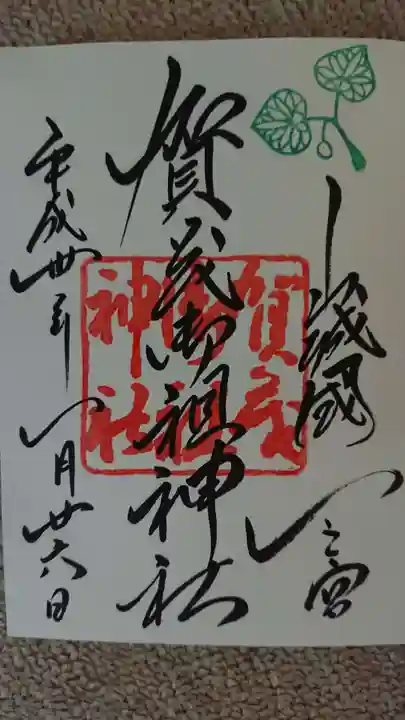 山城國一之宮
賀茂御祖神社
平成卅年一月廿六日
賀茂
御祖
神社